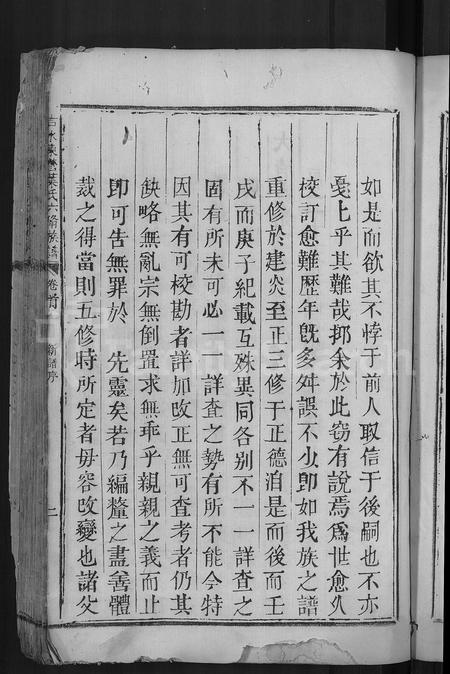 如是而欲其不悖于前人取信于後嗣也不亦
戞乀乎其難哉抑余於此窃有說焉爲世愈久
校訂愈難歷年旣多舛誤不少卽如我族之譜
重修於建炎至正三修于正德洎是而後而壬
戌而庚子紀載互殊異同各别不一一詳查之
固有所未可必一一詳查之勢有所不能今特
因其有可校勘者詳加改正無可查考者仍其
缺略無亂宗無倒置求無乖乎親親之義而止
卽可告無罪於 先靈矣若乃編釐之盡善體
裁之得當則五修時所定者毋容改變也諸父
卷首
新譜序
二